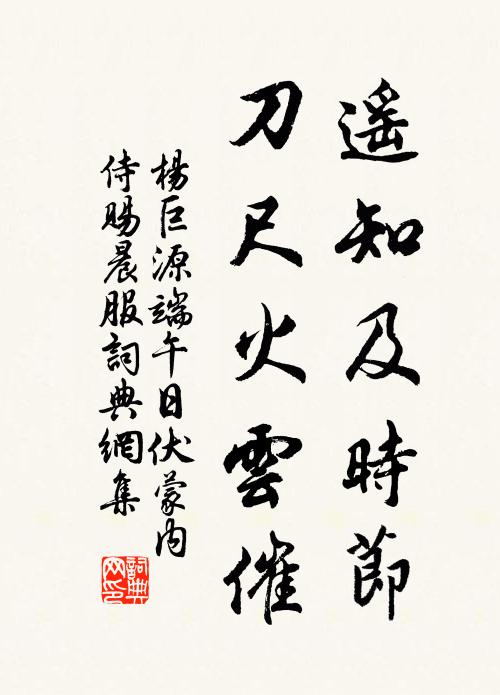 遥知及時節
刀尺火雲催
楊巨源端午日伏蒙内
侍賜晨服詞典網集
詞典
网印